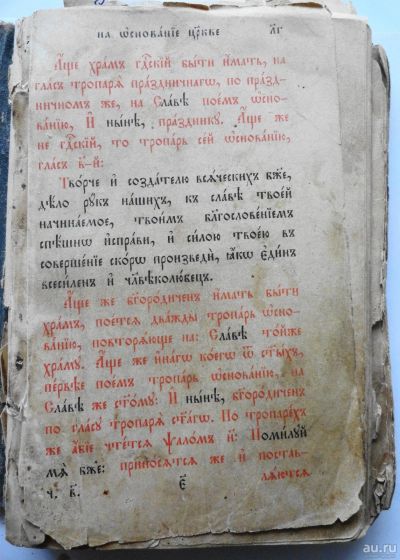 на ѡ҆снова́нїе цр҃кве
л҃г
А҆́ще хра́мъ гдⷭ҇кїй бы́ти и҆́мать, на
гла́съ тропарѧ̀ пра́здничнагѡ, по пра́зд-
ничномъ же, на Сла́вѣ пое́мъ ѡ҆сно-
ва́нїю, И҆ ны́нѣ, пра́здникꙋ. А҆́ще же
не гдⷭ҇кїй, то тропа́рь се́й ѡ҆снова́нїю,
гла́съ в҃-й:
Тво́рче и҆ созда́телю всѧ́ческихъ бж҃е,
дѣ́ло рꙋ́къ на́шихъ, къ сла́вѣ твое́й
начина́емое, твои́мъ бл҃гослове́нїемъ
спѣ́шнѡ и҆спра́ви, и҆ си́лою твое́ю въ
соверше́нїе ско́рѡ произведѝ, ꙗ҆́кѡ є҆ди́нъ
всеси́ленъ и҆ чл҃вѣколю́бецъ.
А҆́ще же бг҃оро́диченъ и҆́мать бы́ти
хра́мъ, пое́тсѧ два́жды тропа́рь ѡ҆сно-
ва́нїю, повторѧ́юще на: Сла́вѣ то́йже
хра́мꙋ. А҆́ще же и҆на́гѡ кое́гѡ ѿ ст҃ы́хъ,
пе́рвѣе пое́мъ тропа́рь ѡ҆снова́нїю, на
Сла́вѣ же ст҃о́мꙋ: И҆ ны́нѣ, бг҃оро́диченъ
по гла́сꙋ тропарѧ̀ ст҃а́гѡ. По тропаре́хъ
же а҆́бїе чте́тсѧ ѱало́мъ н҃: Поми́лꙋй
мѧ̀ бж҃е: прино́сѧтсѧ же и҆ поставлѧ-
ч. в҃.
є҃
лѧ́ютсѧ
au.ru